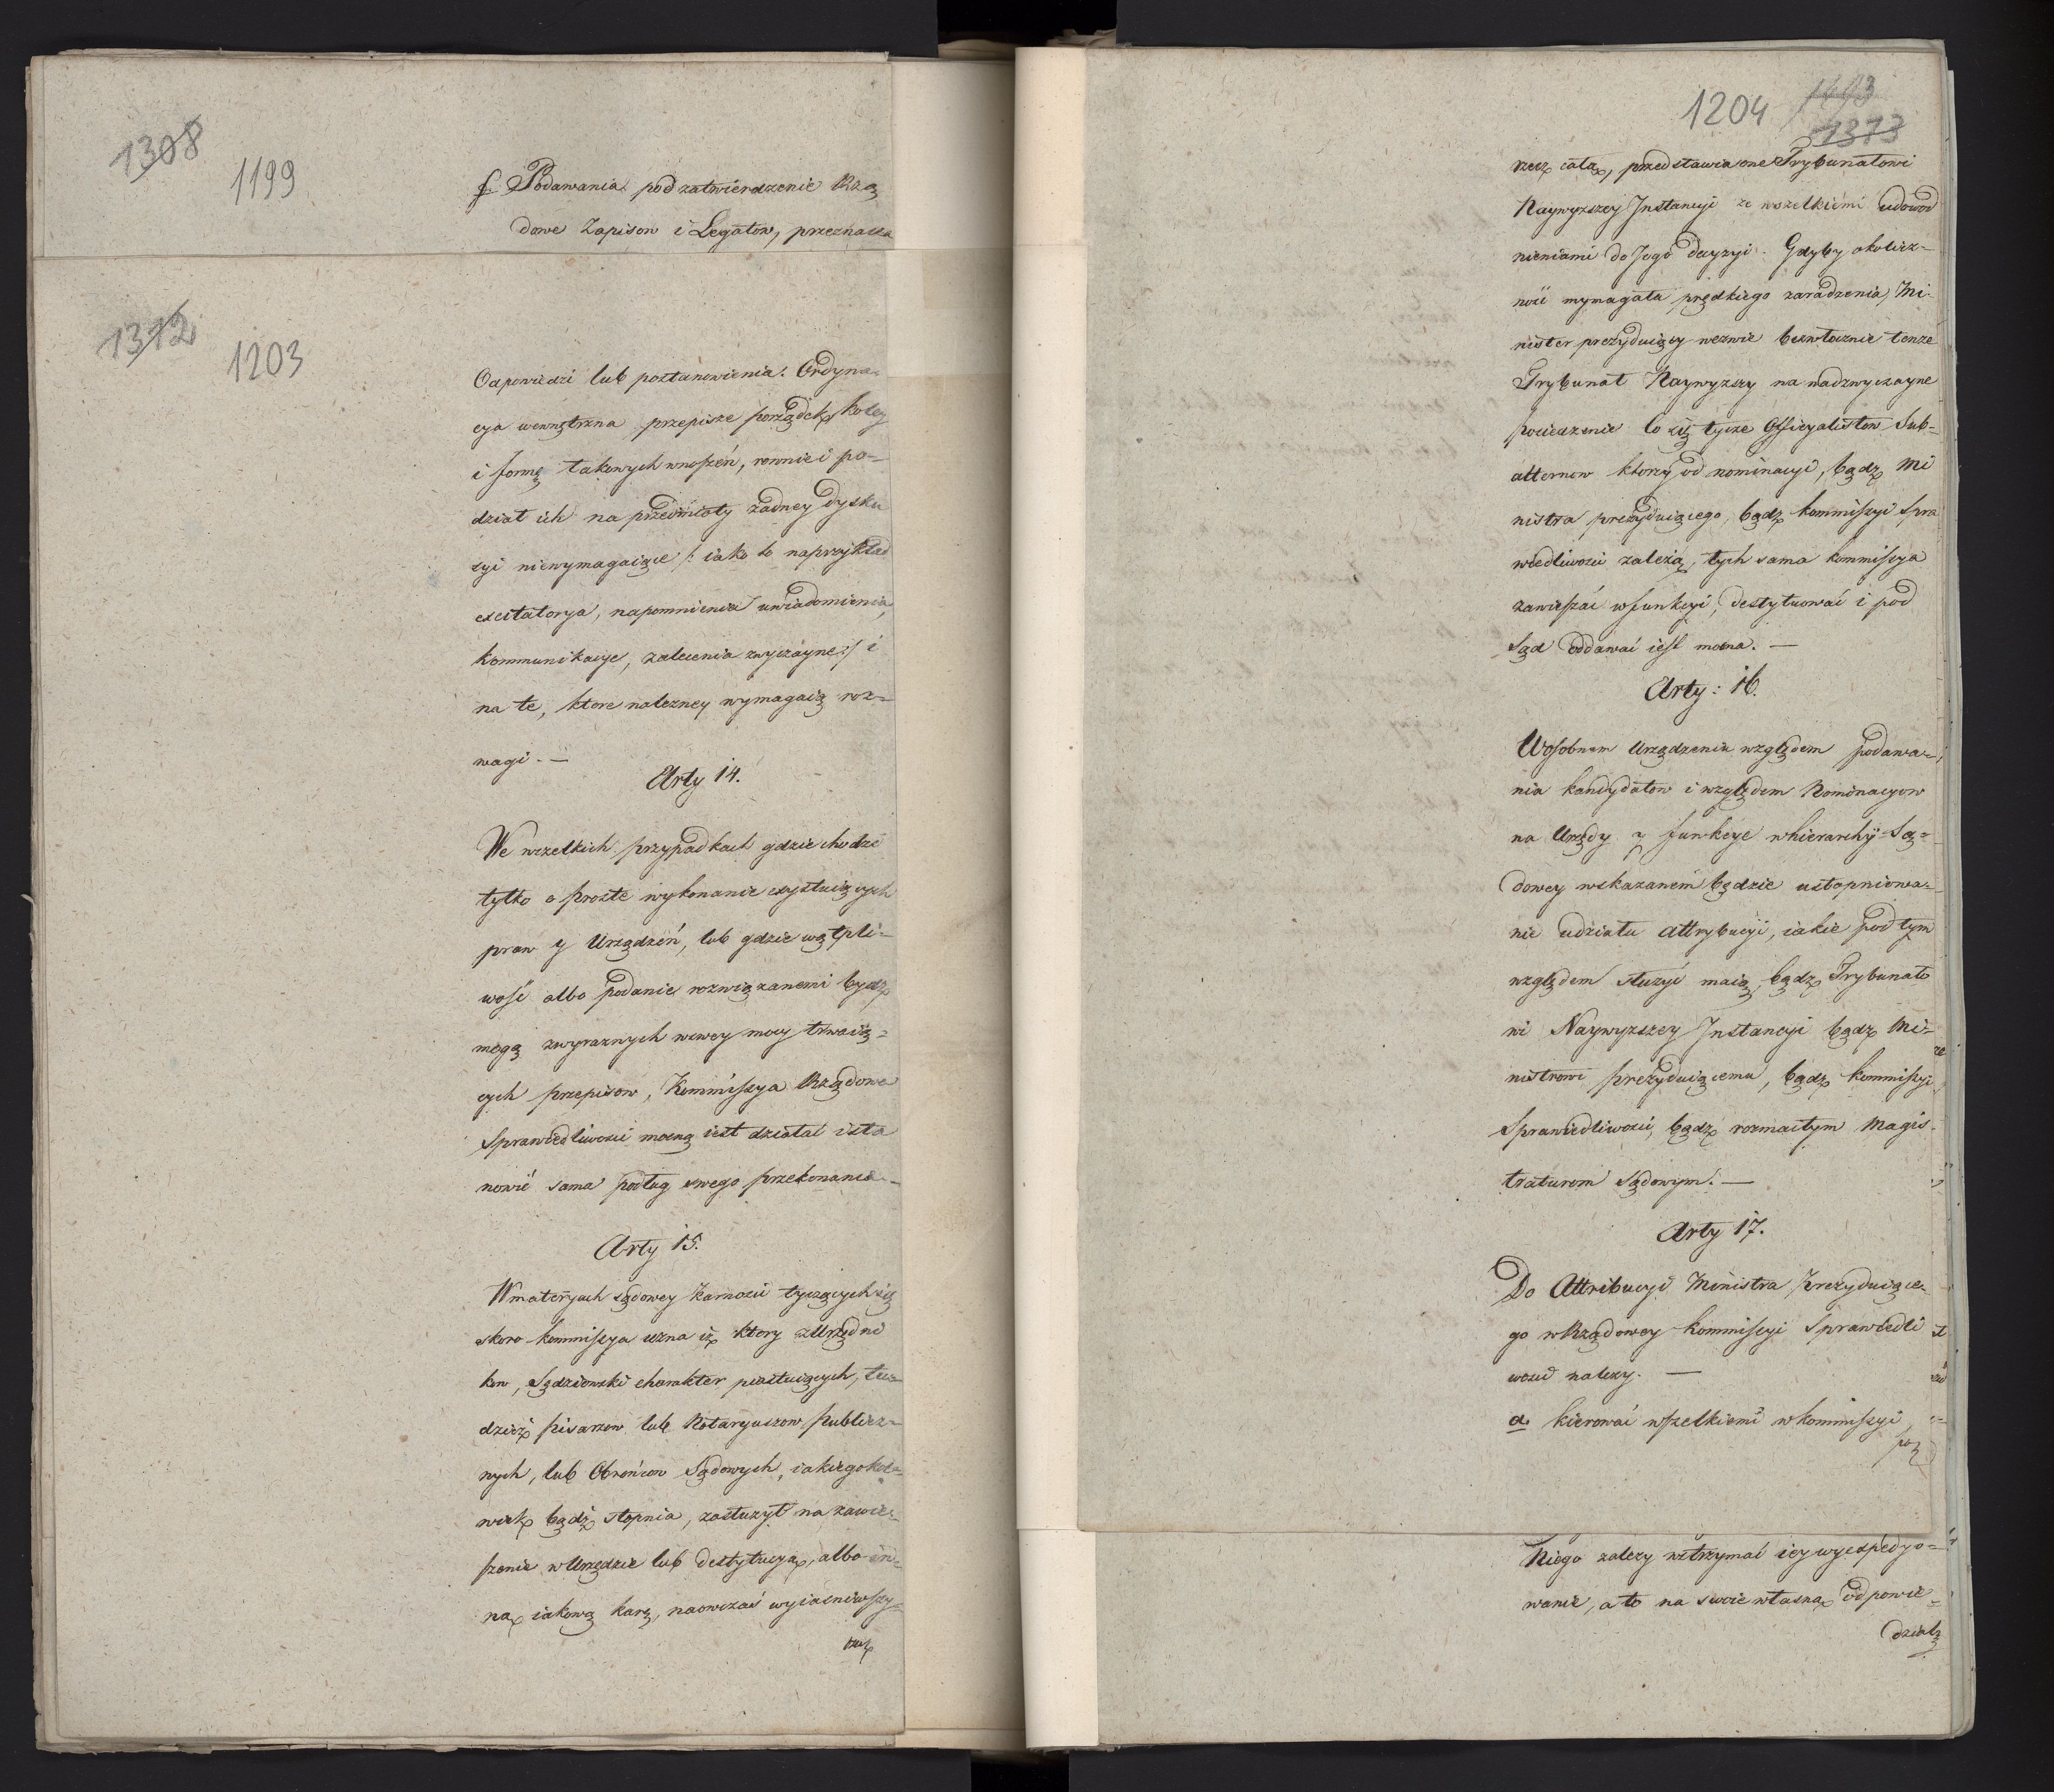 1308
1199
f. Podawania pod zatwierdzenie Rzą
dowe Zapisow i Legatow, przeznacza
1312
1203
Odpowiedzi lub postanowienia. Ordyna-
cya wewnętrzna przepisze porządek, koley
i formę takowych wnoszeń, rownie i po-
dział ich na przedmioty żadney dysku
syi niewymagaiące /: iako to naprzykład
excitatorya, napomnienia uwiadomienia,
kommunikacye, zalecenia zwyczayne :/ i
na te, ktore należney wymagaią roz-
wagi. —
Arty 14.
We wszelkich przypadkach gdzie chodzi
tylko o proste wykonanie exystuiących
praw y Urządzeń, lub gdzie wątpli-
wość albo podanie rozwiązanemi bydź
mogą zwyraznych wswey mocy trwaią-
cych przepisow, Kommissya Rządowa
Sprawiedliwości mocną iest działać i sta
nowić sama podług swego przekonania —
Arty 15.
W materyach sądowey karności tyczących się
skoro kommissya uzna iż ktory z Urzędni
kow, Sędziowski charakter piastuiących, tu-
dzież pisarzow lub Notaryuszow publicz-
nych, lub Obrońcow Sądowych, iakiegokol-
wiek bądź stopnia, zasłużył na zawie-
szenie w Urzędzie lub destytucyą, albo in-
ną iakową karę, naowczas wyiaśniwszy
rzecz
1204
1493
1373
rzecz całą, przedstawia one Trybunałowi
Naywyzszey Instancyi ze wszelkiemi udowod
nieniami do Jego decyzyi. Gdyby okolicz-
ność wymagała prędkiego zaradzenia, Mi-
nister prezyduiący wezwie bezwłocznie tenże
Trybunał Naywyzszy na nadzwyczayne
posiedzenie Co się tycze Officyalistow Sub-
alternow ktorzy od nominacyi, bądź Mi
nistra prezyduiącego, bądź kommissyi Spra
wiedliwości zależą, tych sama kommissya
zawieszać wfunkcyi, destytuować i pod
Sąd oddawać iest mocna. —
Arty: 16.
W osobnem Urządzeniu względem podawa-
nia kandydatow i względem Nominacyow
na Urzędy y funkcye w hierarchij Są-
dowey wskazanem będzie ustopniowa-
nie udziału attrybucyi, iakie pod tym
względem służyć maią, bądź Trybunało
wi Naywyzszey Instancyi bądź Mi-
nistrowi prezyduiącemu, bądź kommissyi
Sprawiedliwości, bądź rozmaitym Magis-
traturom Sądowym. —
Arty 17.
Do Attribucyi Ministra Prezyduiące-
go w Rządowey kommissyi Sprawiedli
wości należy. —
a. kierować wszelkiemi w kommissyi
po
Niego zależy wstrzymać iey wyexpedyo-
wanie, a to na swoie własną odpowie-
dzial